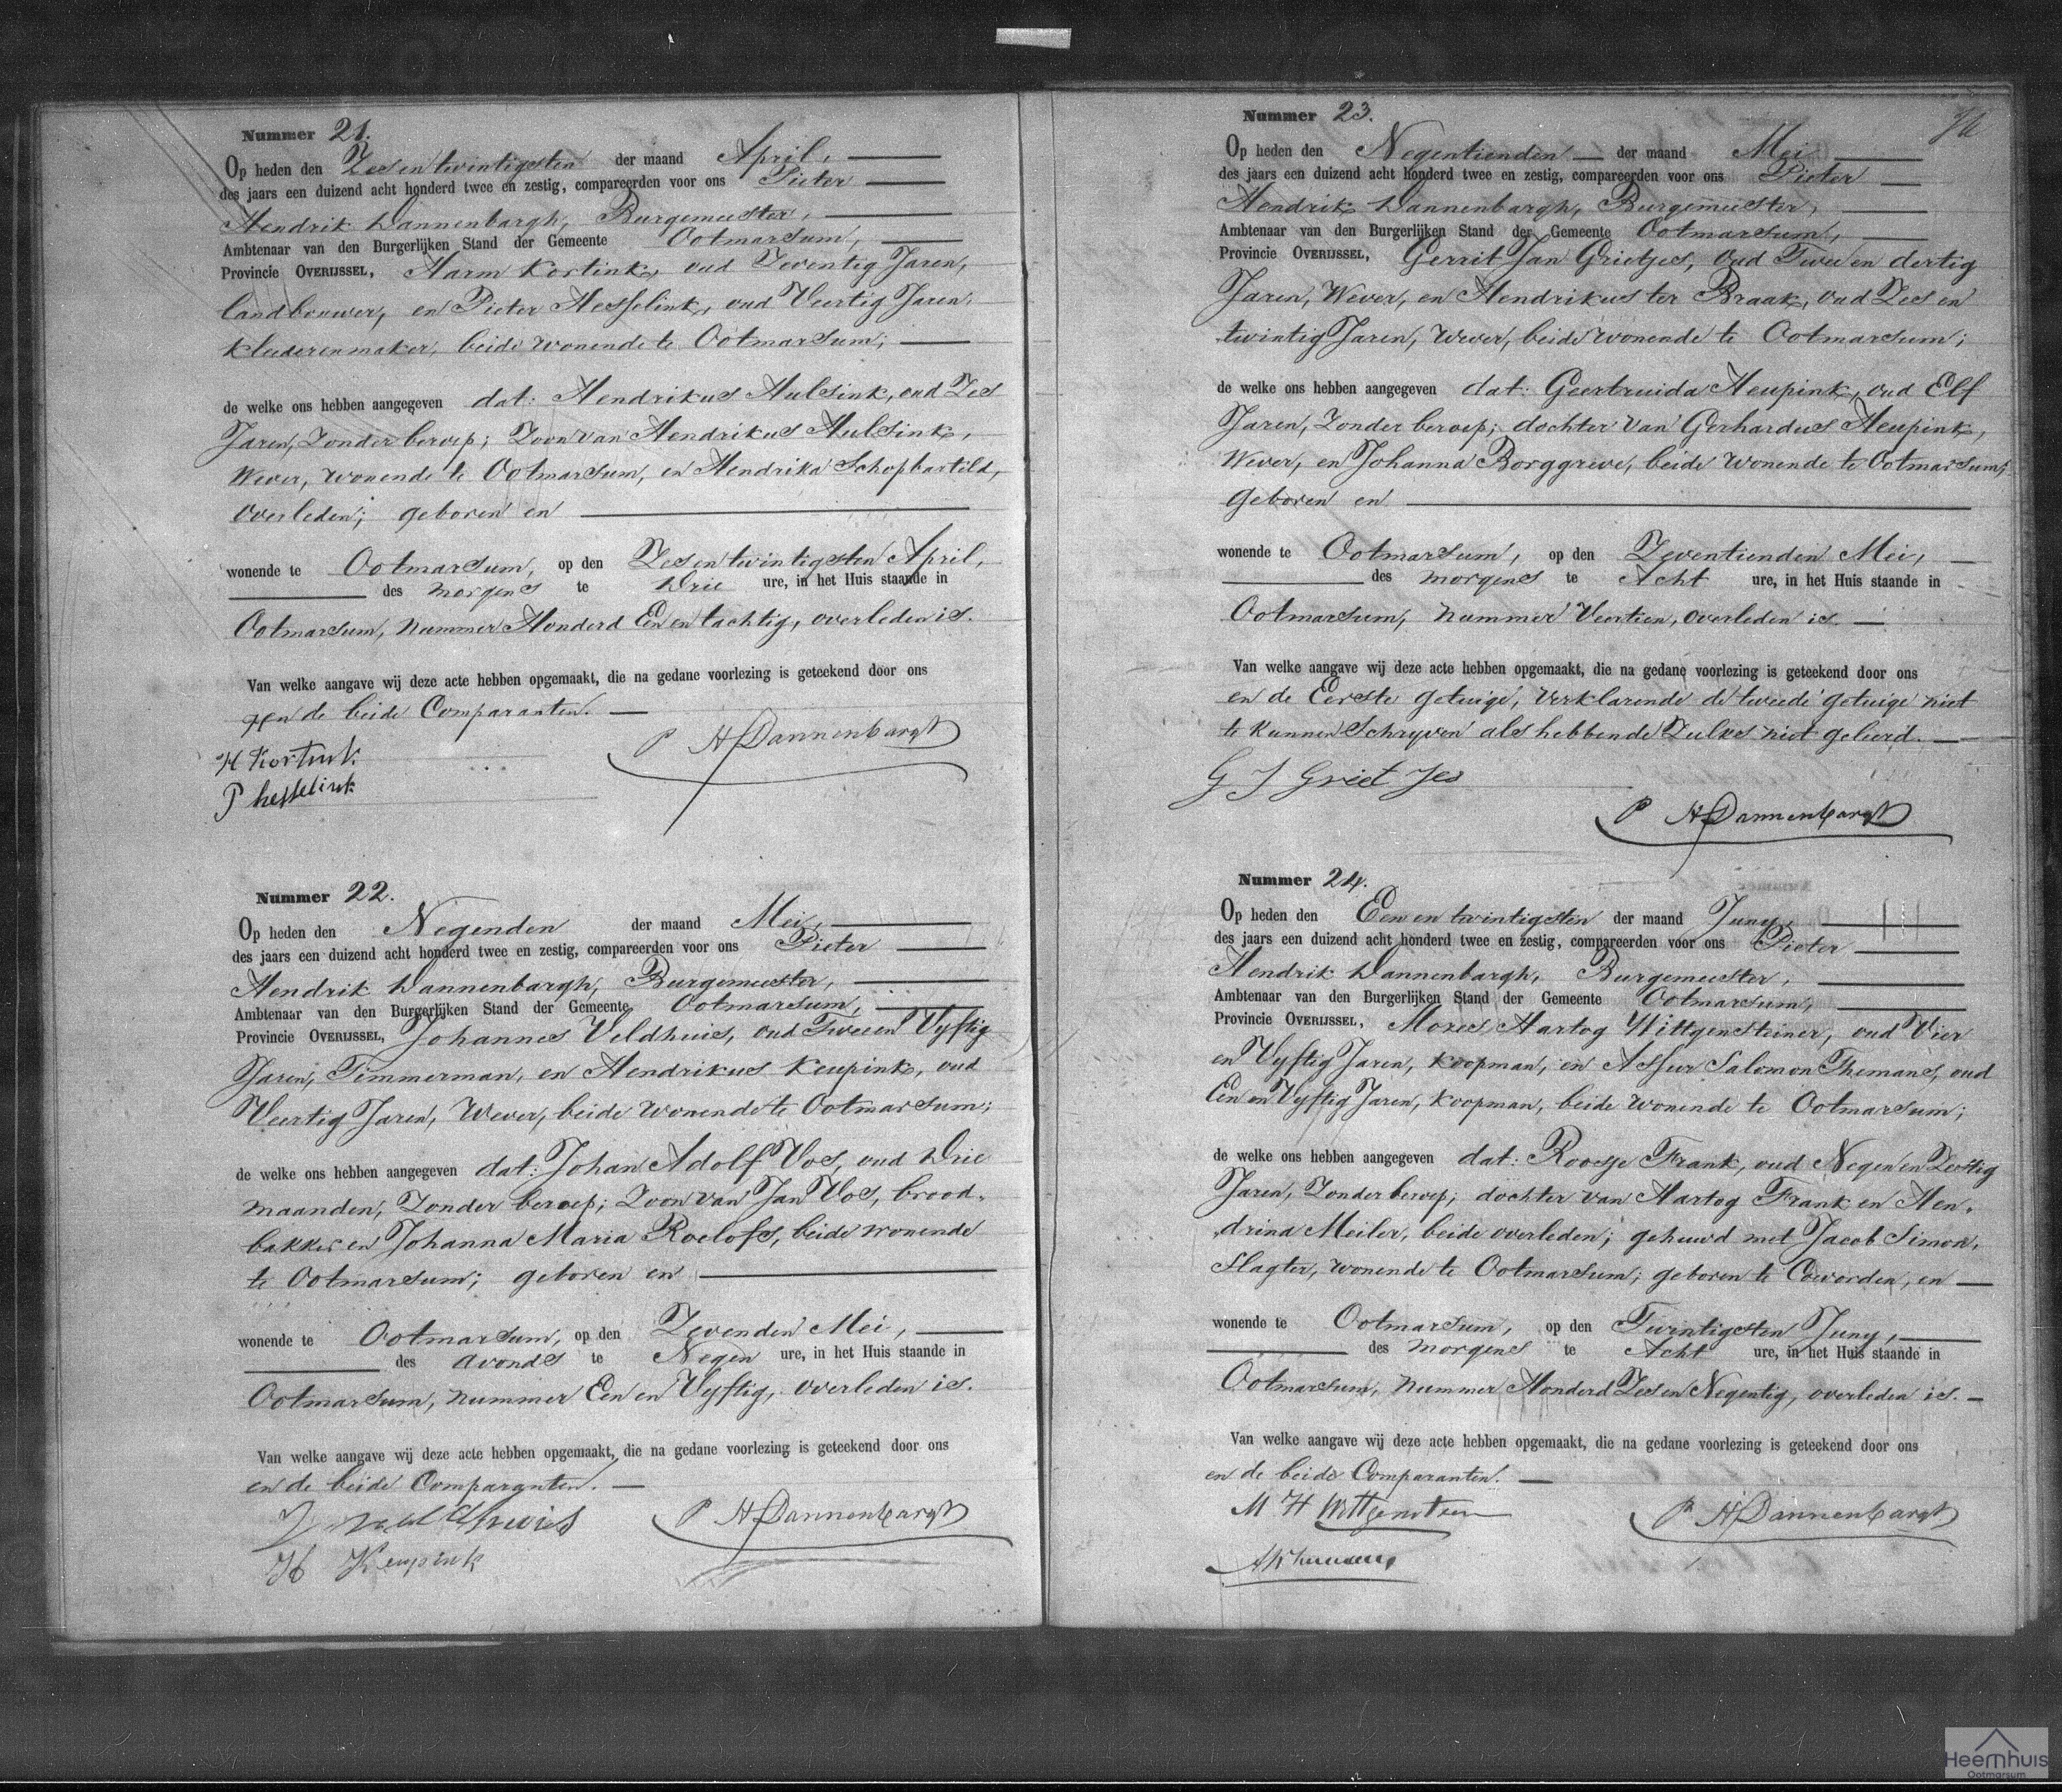 Nummer 21.
Op heden den Zes en twintigsten der maand April,
des jaars een duizend acht honderd twee en zestig, compareerden voor ons Pieter
Hendrik Dannenbargh, Burgemeester,
Ambtenaar van den Burgerlijken Stand der Gemeente Ootmarsum,
Provincie OVERIJSSEL, Harm Kortink, oud Zeventig Jaren,
landbouwer, en Pieter Hesselink, oud Veertig Jaren,
kleederenmaker, beide wonende te Ootmarsum;
de welke ons hebben aangegeven dat: Hendrikus Hulsink, oud Zes
Jaren, Zonder beroep; Zoon van Hendrikus Hulsink,
Wever, wonende te Ootmarsum, en Hendrika Schopbarteld,
overleden; geboren en
wonende te Ootmarsum, op den Zes en twintigsten April,
des morgens te Drie ure, in het Huis staande in
Ootmarsum, nummer Honderd Een en tachtig, overleden is.
Van welke aangave wij deze acte hebben opgemaakt, die na gedane voorlezing is geteekend door ons
en de beide Comparanten.
H Kortink
P A Dannenbargh
P hesselink
Nummer 22.
Op heden den Negenden der maand Mei,
des jaars een duizend acht honderd twee en zestig, compareerden voor ons Pieter
Hendrik Dannenbargh, Burgemeester,
Ambtenaar van den Burgerlijken Stand der Gemeente Ootmarsum,
Provincie OVERIJSSEL, Johannes Veldhuis, oud Twee en Vyftig
Jaren, Timmerman, en Hendrikus Keupink, oud
Veertig Jaren, Wever, beide wonende te Ootmarsum;
de welke ons hebben aangegeven dat: Johan Adolf Vos, oud Drie
maanden, Zonder beroep; Zoon van Jan Vos, brood-
bakker en Johanna Maria Roelofs, beide wonende
te Ootmarsum; geboren en
wonende te Ootmarsum, op den Zevenden Mei,
des avonds te Negen ure, in het Huis staande in
Ootmarsum, nummer Een en Vyftig, overleden is.
Van welke aangave wij deze acte hebben opgemaakt, die na gedane voorlezing is geteekend door ons
en de beide Comparanten.
P H Dannenbargh
H Keupink
Nummer 23.
Op heden den Negentienden der maand Mei
des jaars een duizend acht honderd twee en zestig, compareerden voor ons Pieter
Hendrik Dannenbargh, Burgemeester,
Ambtenaar van den Burgerlijken Stand der Gemeente Ootmarsum,
Provincie OVERIJSSEL, Gerrit Jan Grietjes, oud Twee en dertig
Jaren, Wever, en Hendrikus ter Braak, oud Zes en
twintig Jaren, Wever, beide wonende te Ootmarsum;
de welke ons hebben aangegeven dat: Geertruida Heupink, oud Elf
Jaren, Zonder beroep; dochter van Gerhardus Heupink,
Wever, en Johanna Borggreve, beide wonende te Ootmarsum;
geboren en
wonende te Ootmarsum, op den Zeventienden Mei,
des morgens te Acht ure, in het Huis staande in
Ootmarsum, nummer Veertien, overleden is.
Van welke aangave wij deze acte hebben opgemaakt, die na gedane voorlezing is geteekend door ons
en de Eerste getuige, verklarende de tweede getuige niet
te kunnen Schryven als hebbende Zulks niet geleerd.
G J Griet Jes
P H Dannenbargh
Nummer 24.
Op heden den Een en twintigsten der maand Juny,
des jaars een duizend acht honderd twee en zestig, compareerden voor ons Pieter
Hendrik Dannenbargh, Burgemeester,
Ambtenaar van den Burgerlijken Stand der Gemeente Ootmarsum,
Provincie OVERIJSSEL, Mozes Hartog Wittgensteiner, oud Vier
en Vyftig Jaren, koopman, en Assur Salomon Themans, oud
Een en Vyftig Jaren, koopman, beide wonende te Ootmarsum;
de welke ons hebben aangegeven dat: Roosje Frank, oud Negen en Zestig
Jaren, Zonder beroep; dochter van Hartog Frank en Hen-
drina Meiler, beide overleden; gehuwd met Jacob Simon,
Slagter, wonende te Ootmarsum; geboren te Coevorden, en
wonende te Ootmarsum, op den Twintigsten Juny,
des morgens te Acht ure, in het Huis staande in
Ootmarsum, nummer Honderd Zes en Negentig, overleden is.
Van welke aangave wij deze acte hebben opgemaakt, die na gedane voorlezing is geteekend door ons
en de beide Comparanten.
M H Wittgenstein
P H Dannenbargh
Heemhuis
Ootmarsum